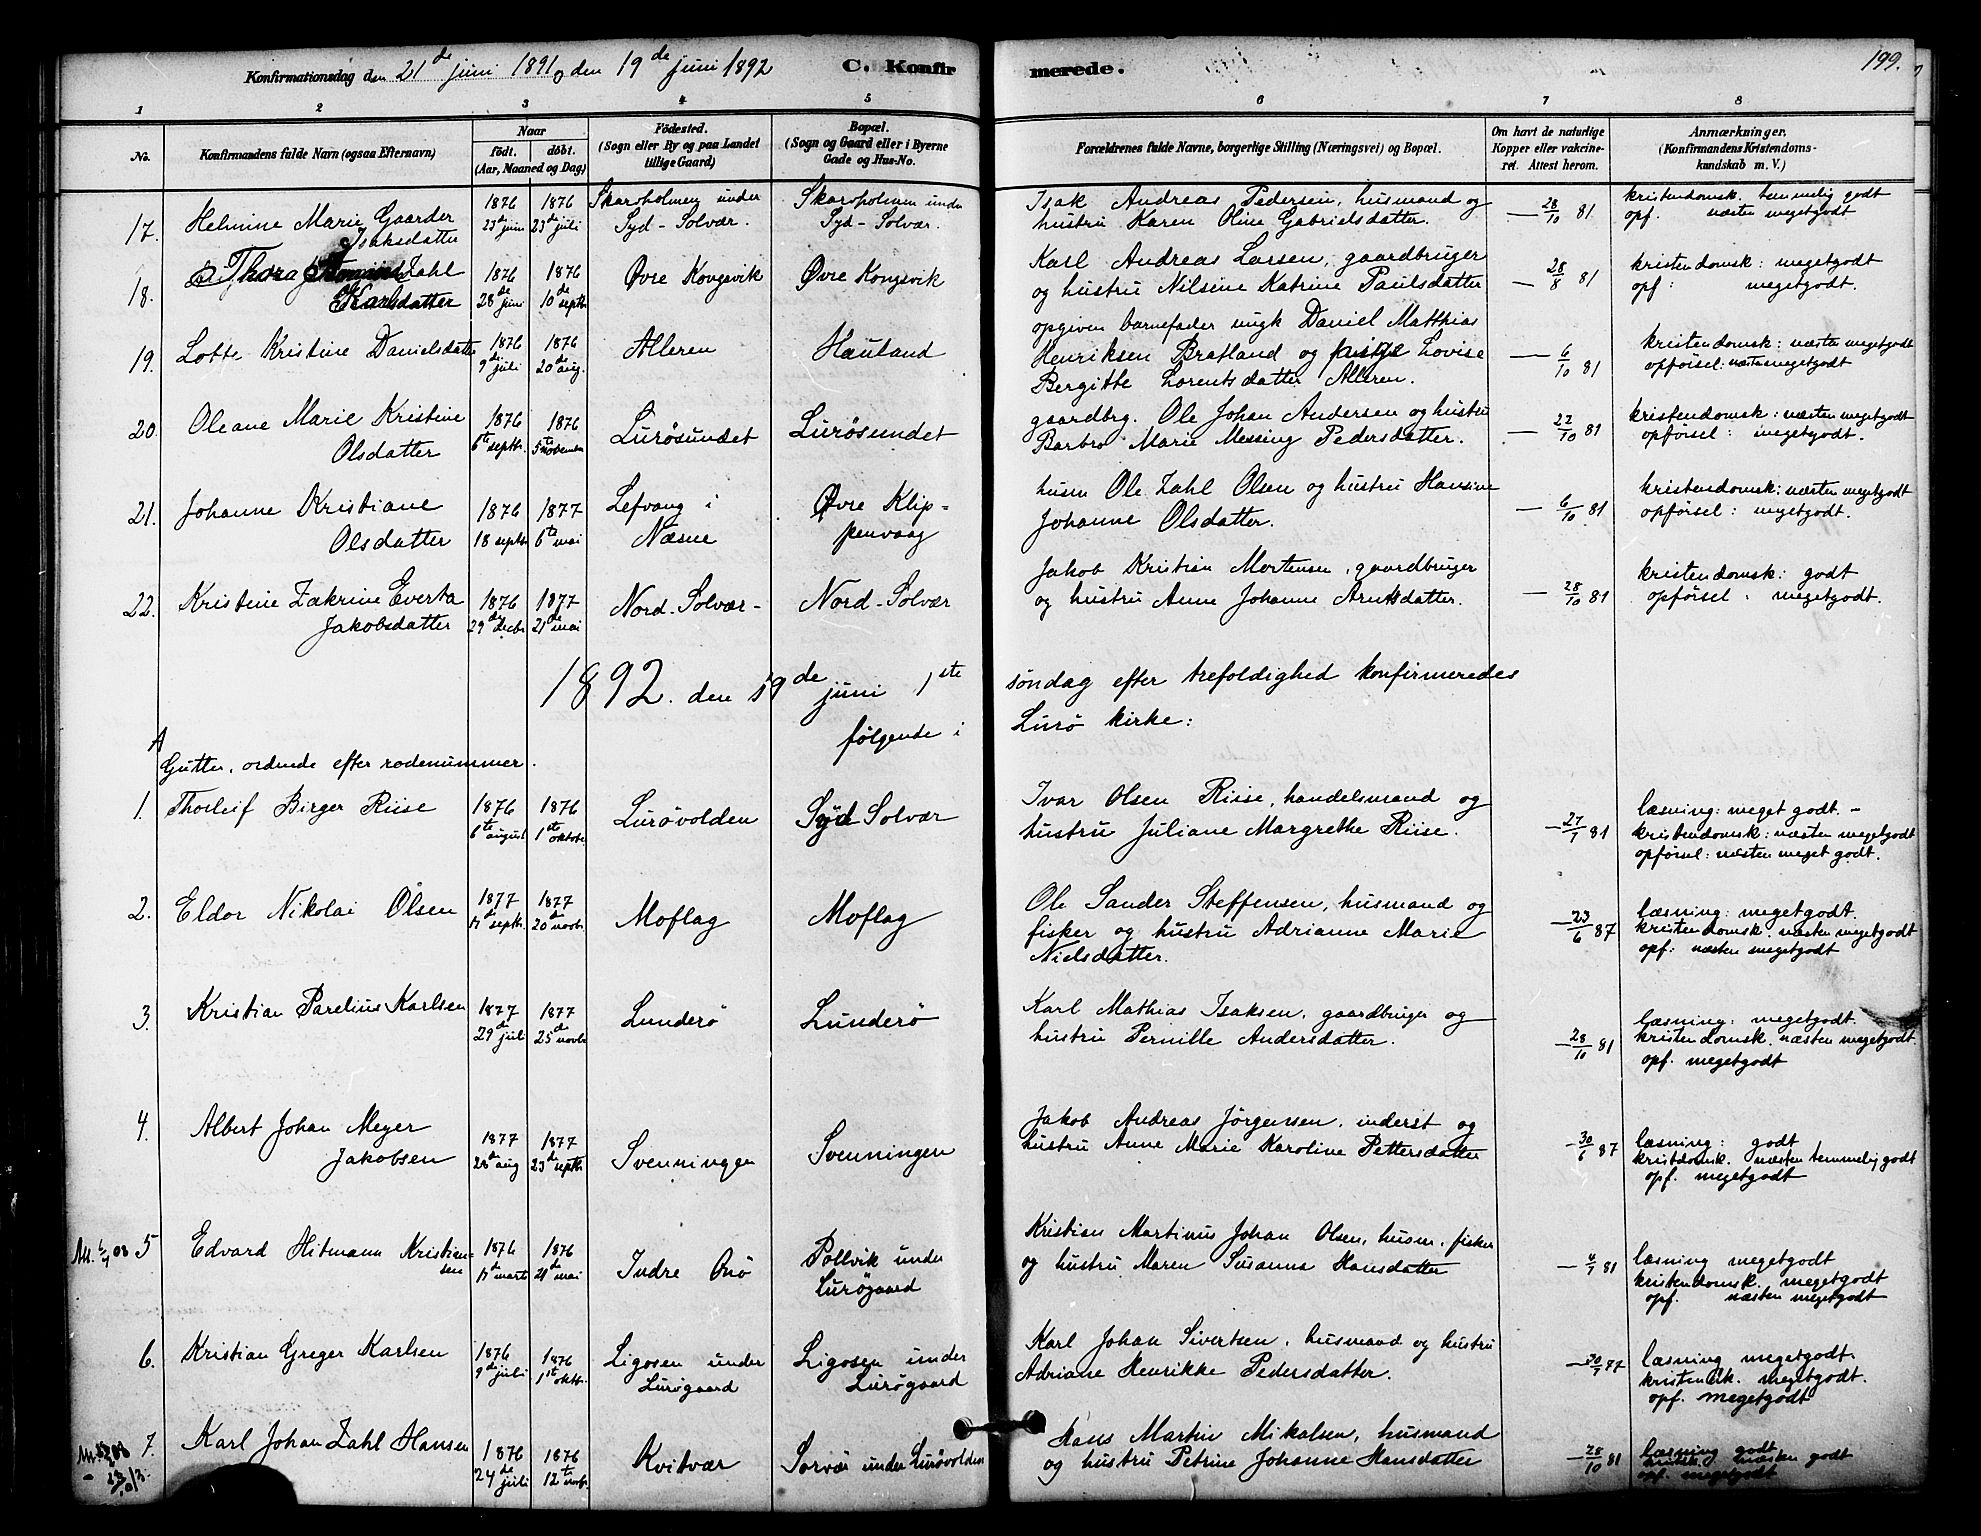 Konfirmationsdag den 21de juni 1891 o den 19de juni 1892 C. Konfirmerede. 199.
1 2 3 4 5 6 7 8
No. Konfirmandens fulde Navn (ogsaa Efternavn) Naar født. døbt. (Aar, Maaned og Dag) Födested. (Sogn eller By og paa Landet tillige Gaard) Bopæl. (Sogn og Gaard eller i Byerne Gade og Hus-No. Forældrenes fulde Navne, borgerlige Stilling (Næringsvei) og Bopæl. Om havt de naturlige Kopper eller vakcineret. Attest herom. Anmærkninger. (Konfirmandens Kristendomskundskab m. V.)
17. Helmine Marie Gaarder Isaksdatter 1876 23de juni 1876 23de juli Skarvholmen under Syd-Solvær. Skarvholmen under Syd-Solvær. Isak Andreas Pedersen, husmand og
hustru Karen Oline Gabrielsdatter. — 28/10 81 kristendomsk. temmelig godt
opf. næsten megetgodt
18. Thora Zahl Karlsdatter 1876 28de juni 1876 10de septbr Øvre Kongsvik Øvre Kongsvik Karl Andreas Larsen, gaardbruger
og hustru Nilsine Katrine Paulsdatter — 28/8 81 kristendomsk: megetgodt
opf: megetgodt.
19. Lotte Kristine Danielsdatter 1876 9de juli 1876 20de aug. Alleren Hauland opgiven barnefader ungk Daniel Matthias
Henriksen Bratland og pige Lovise
Bergitte Lorentsdatter Alleren. — 6/10 81 kristendomsk: næsten megetgodt
opførsel: næstenmegetgodt
20. Oleane Marie Kristine Olsdatter 1876 6te septbr. 1876 5te november Lurøsundet Lurøsundet gaardbrg. Ole Johan Andersen og hustru
Barbro Marie Messing Pedersdatter. — 22/10 81 kristendomsk: næsten megetgodt
opførsel: megetgodt.
21. Johanne Kristiane Olsdatter 1876 18 septbr 1877 6te mai Lefvang i Næsne Øvre Klippenvaag husm Ole Zahl Olsen og hustru Hansine
Johanne Olsdatter. — 6/10 81 kristendomsk: næsten megetgodt
opførsel: megetgodt.
22. Kristine Zakrine Everta Jakobsdatter 1876 29de decbr 1877 21de mai Nord-Solvær- Nord-Solvær Jakob Kristian Mortensen, gaardbruger
og hustru Anne Johanne Arntsdatter. — 28/10 81 kristendomsk: godt
opførsel: megetgodt.
1892. den 19de juni 1ste søndag efter trefoldighed konfirmeredes
følgende i Lurø kirke:
A
Gutter, ordnede efter rodenummer.
1. Thorleif Birger Riise 1876 6te august 1876 1ste oktober Lurøvolden Syd Solvær Ivar Olsen Riise, handelsmand og
hustru Juliane Margrethe Riise. — 27/7 81 læsning: meget godt. -
kristendomsk: næsten megetgodt
opførsel: næsten meget godt.
2. Eldor Nikolai Olsen 1877 17de septbr. 1877 20de novbr Moflag Moflag Ole Sander Steffensen, husmand og
fisker og hustru Adrianne Marie
Nielsdatter. — 23/6 87 læsning: megetgodt.
kristendomsk: næsten megetgodt
opf: næsten megetgodt
3. Kristian Parelius Karlsen 1877 29de juli 1877 25de novbr Lunderø Lunderø Karl Mathias Isaksen, gaardbruger og
hustru Pernille Andersdatter. — 28/10 81 læsning: megetgodt.
kristendomsk. næsten megetgodt.
opf. megetgodt
4. Albert Johan Meyer Jakobsen 1877 28de aug 1877 23de septbr Svenningen Svenningen Jakob Andreas Jörgensen, inderst og
hustru Anne Marie Karoline Pettersdatter — 30/6 87 læsning: godt
kristdomsk. næsten temmelig godt
opf. megetgodt
5 Edvard Hitmann Kristiansen 1876 17de marts 1876 21de mai Indre Onø Pollvik under Lurøgaard Kristian Martinus Johan Olsen, husm. fisker
og hustru Maren Susanna Hansdatter — 4/7 81 læsning megetgodt
kristendomsk. megetgodt
opf. næsten megetgodt
6. Kristian Greger Karlsen 1876 9de juli 1876 1ste oktbr. Ligosen under Lurøgaard Ligosen under Lurøgaard Karl Johan Sivertsen, husmand og hustru
Adriane Henrikke Pedersdatter. — 30/7 77 læsning megetgodt.
kristendsk. megetgodt.
opf. megetgodt
7. Karl Johan Zahl Hansen 1876 24de juli 1876 12te novbr. Kvitvær Sorvær under Lurøvolden Hans Martin Mikalsen, husmand
og hustru Petrine Johanne Hansdatter — 28/10 81 læsning godt
næsten godt
opf. megetgodt